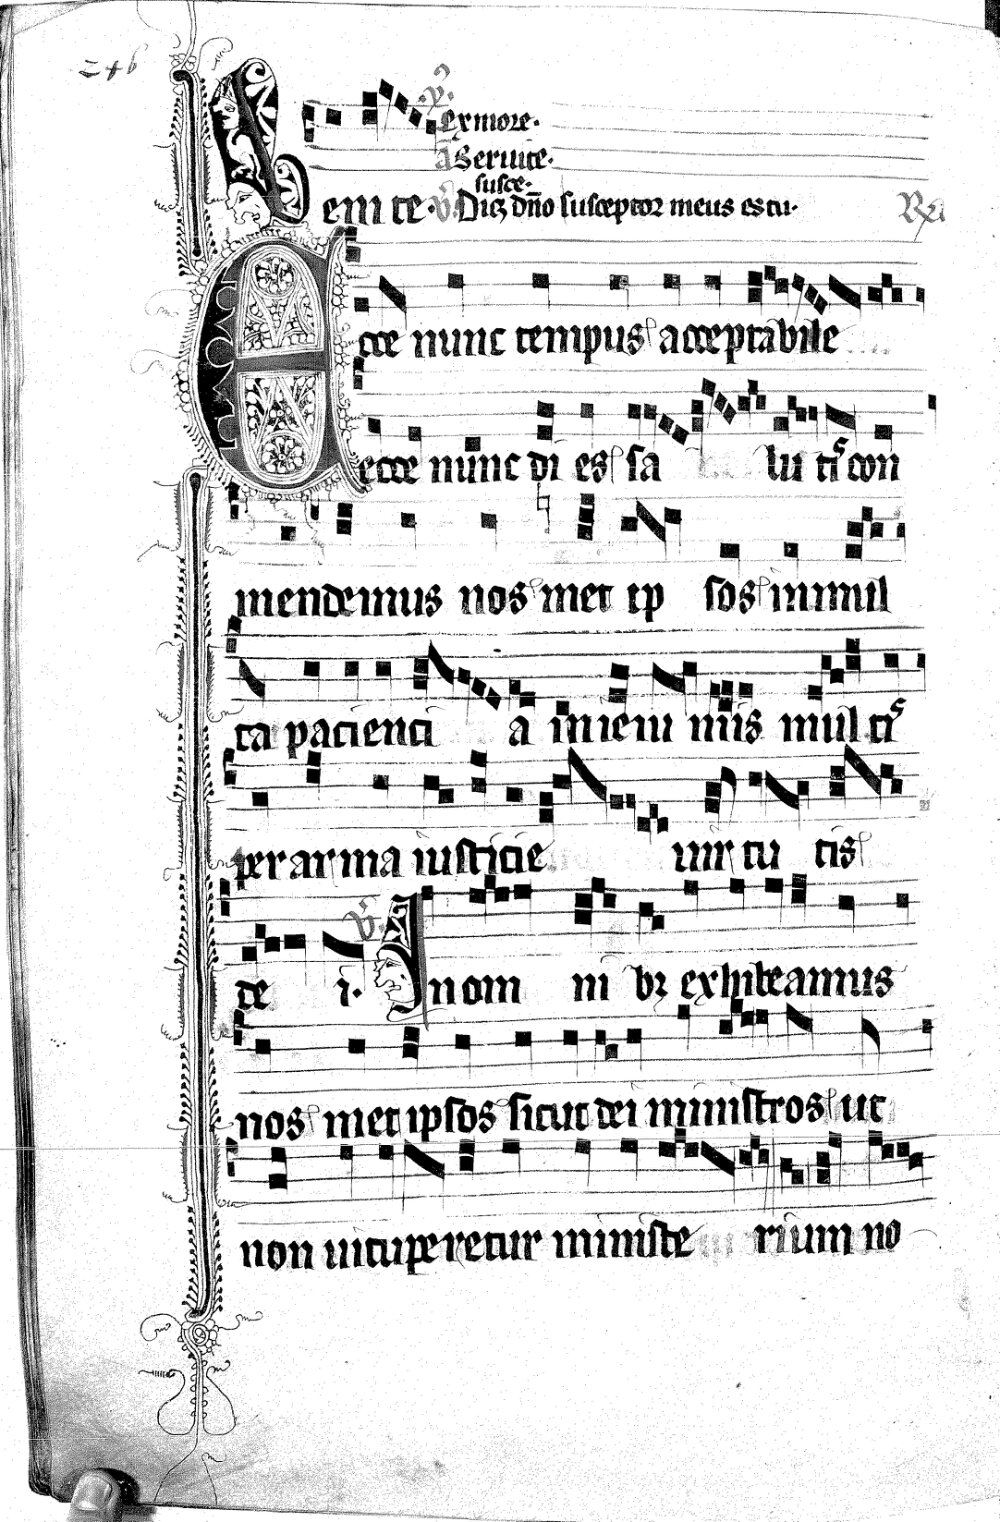 246
v̄. Ex more.
ā Seruite.
susce.
Venite. v̄. Dicꝫ dn̄o susceptor meus es tu.
Ecce nunc tempus acceptabile
ecce nunc di es sa lu tis con
mendemus nos met ip sos in mul
ta pacienci a in ieiu niis mul tis
per arma iusticie uir tu tis
de i. v̄. In om ni bꝫ exhibeamus
nos met ipsos sicut dei ministros ut
non uituperetur ministe rium no